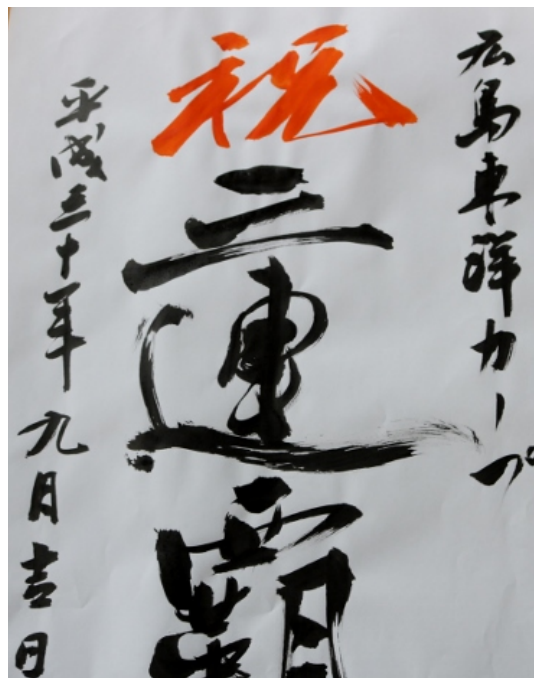 広島東洋カープ
祝
三連覇
平成三十年九月吉日